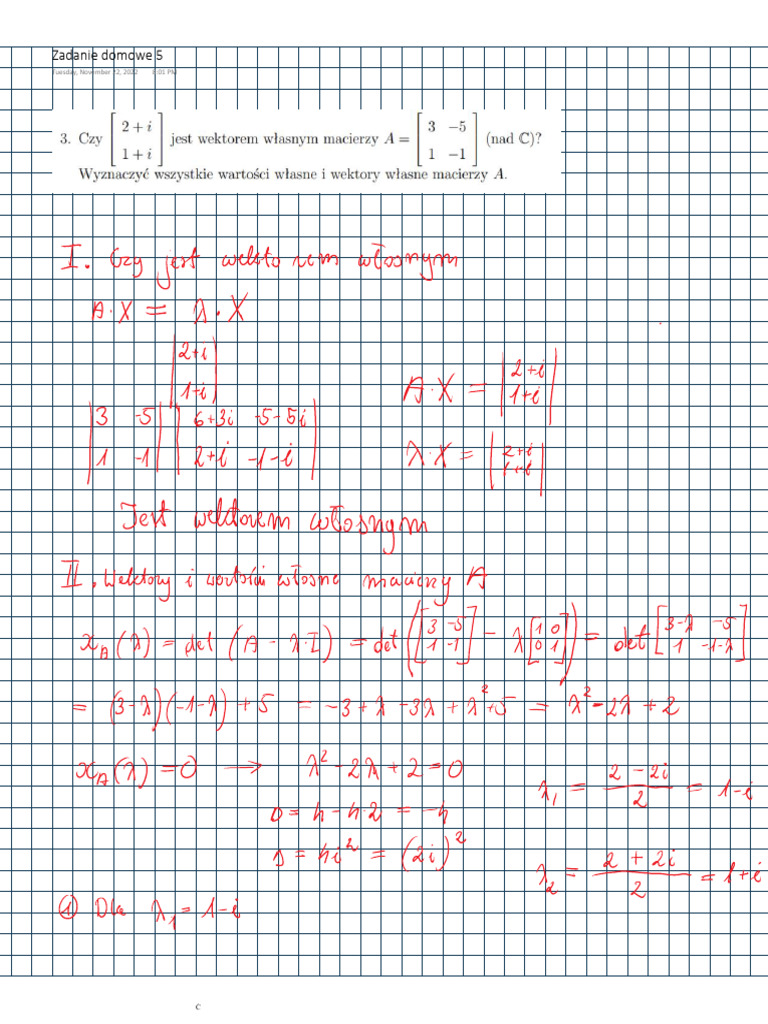 Zadanie domowe 5
Tuesday, November 22, 2022 8:01 PM
3. Czy [2 + i; 1 + i] jest wektorem własnym macierzy A = [3 −5; 1 −1] (nad ℂ)?
Wyznaczyć wszystkie wartości własne i wektory własne macierzy A.
I. Czy jest wektorem własnym
A·X = λ·X
|2+i|
|1-i|
|3 -5| |6+3i -5-5i|
|1 -1| |2+i -1-i|
A·X = |2+i; 1+i|
λ·X = |2+i; 1+i|
Jest wektorem własnym
II. Wektory i wartości własne macierzy A
x_A(λ) = det (A - λ·I) = det([3 -5; 1 -1] - λ[1 0; 0 1]) = det[3-λ -5; 1 -1-λ]
= (3-λ)(-1-λ) + 5 = -3+λ-3λ+λ²+5 = λ²-2λ+2
x_A(λ) = 0 → λ²-2λ+2=0
Δ = 4-4·2 = -4
Δ = 4i² = (2i)²
λ₁ = (2-2i)/2 = 1-i
λ₂ = (2+2i)/2 = 1+i
① Dla λ₁ = 1-i
c